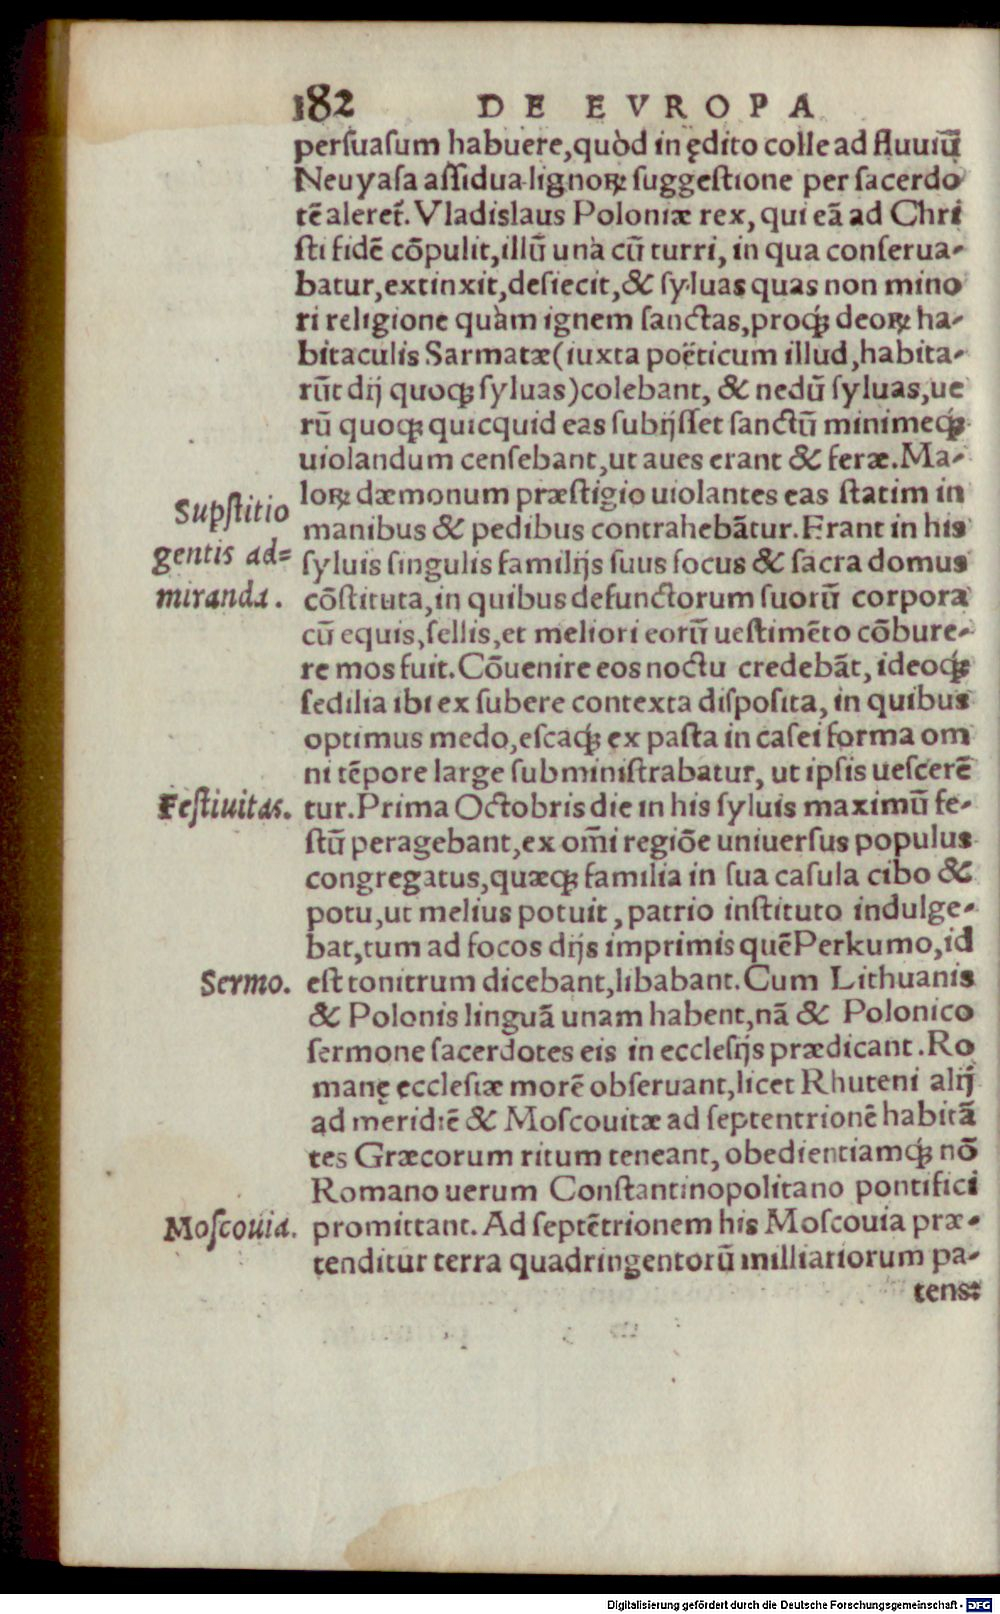 182 DE EVROPA
perſuaſum habuere, quòd in ędito colle ad fluuiũ
Neuyaſa aſſidua lignoꝝ ſuggeſtione per ſacerdo
tẽ aleret̃. Vladislaus Poloniæ rex, qui eã ad Chri
ſti fidẽ cõpulit, illũ unà cũ turri, in qua conſerua-
batur, extinxit, deſiecit, & ſyluas quas non mino
ri religione quàm ignem ſanctas, proq́ꝫ deoꝝ ha-
bitaculis Sarmatæ (iuxta poëticum illud, habita-
rũt dij quoqꝫ ſyluas) colebant, & nedũ ſyluas, ue
rũ quoqꝫ quicquid eas ſubijſſet ſanctũ minimeq́ꝫ
uiolandum cenſebant, ut aues erant & feræ. Ma-
loꝝ dæmonum præſtigio uiolantes eas ſtatim in
Supſtitio
gentis ad=
miranda.
manibus & pedibus contrahebãtur. Erant in his
ſyluis ſingulis familijs ſuus focus & ſacra domus
cõſtituta, in quibus defunctorum ſuorũ corpora
cũ equis, ſellis, et meliori eorũ ueſtimẽto cõbure-
re mos fuit. Cõuenire eos noctu credebãt, ideoq́ꝫ
ſedilia ibi ex ſubere contexta diſpoſita, in quibus
optimus medo, eſcaq́ꝫ ex paſta in caſei forma om
ni tẽpore large ſubminiſtrabatur, ut ipſis ueſcerẽ
Feſtiuitas.
tur. Prima Octobris die in his ſyluis maximũ fe-
ſtũ peragebant, ex om̃i regiõe uniuerſus populus
congregatus, quæqꝫ familia in ſua caſula cibo &
potu, ut melius potuit, patrio inſtituto indulge-
bat, tum ad focos dijs imprimis quẽ Perkumo, id
Sermo.
eſt tonitrum dicebant, libabant. Cum Lithuanis
& Polonis linguã unam habent, nã & Polonico
ſermone ſacerdotes eis in eccleſijs prædicant. Ro
manę eccleſiæ morẽ obſeruant, licet Rhuteni alij
ad meridiẽ & Moſcouitæ ad ſeptentrionẽ habitã
tes Græcorum ritum teneant, obedientiamq́ꝫ nõ
Romano uerum Conſtantinopolitano pontifici
Moſcouia.
promittant. Ad ſeptẽtrionem his Moſcouia præ-
tenditur terra quadringentorũ milliariorum pa-
tens:
Digitalisierung gefördert durch die Deutsche Forschungsgemeinschaft - DFG